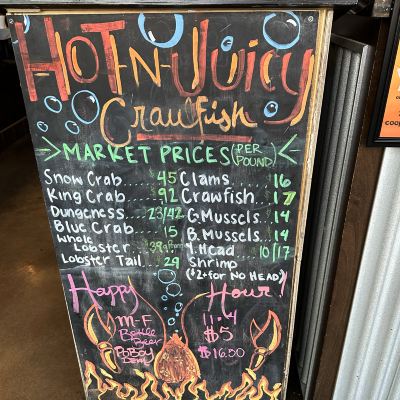 HOT-N-JUICY
Crawfish
MARKET PRICES (PER POUND)
Snow Crab.... 45
King Crab.... 92
Dungeness... 23/42
Blue Crab.... 15
Whole
Lobster...
Lobster Tail.. 29
Clams.... 16
Crawfish... 17
G. Mussels.. 14
B. Mussels.. 14
Head.. 10/17
Shrimp
($2+ for No HEAD)
Happy Hour!
M-F 11-4
Bottle Beer $5
PoBoy $16.00